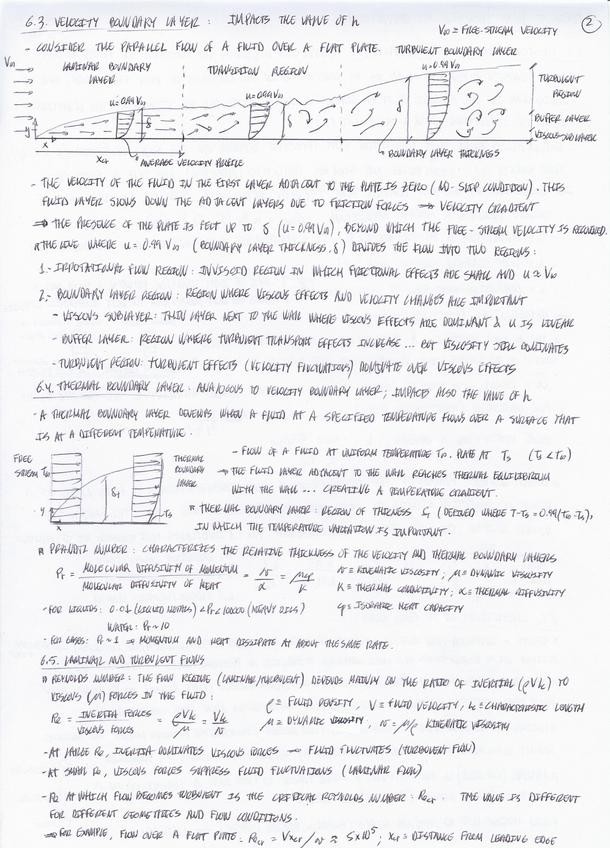 6.3. VELOCITY BOUNDARY LAYER: IMPACTS THE VALUE OF h
V∞ ≡ FREE-STREAM VELOCITY
2
- CONSIDER THE PARALLEL FLOW OF A FLUID OVER A FLAT PLATE.
TURBULENT BOUNDARY LAYER
V∞
LAMINAR BOUNDARY LAYER
TRANSITION REGION
u=0.99V∞
u=0.99V∞
u=0.99V∞
TURBULENT REGION
BUFFER LAYER
VISCOUS SUBLAYER
y
x
δ
δ
δ
xcr
AVERAGE VELOCITY PROFILE
BOUNDARY LAYER THICKNESS
- THE VELOCITY OF THE FLUID IN THE FIRST LAYER ADJACENT TO THE PLATE IS ZERO (NO-SLIP CONDITION). THIS
FLUID LAYER SLOWS DOWN THE ADJACENT LAYERS DUE TO FRICTION FORCES ⇒ VELOCITY GRADIENT
⇒ THE PRESENCE OF THE PLATE IS FELT UP TO δ (u=0.99V∞), BEYOND WHICH THE FREE-STREAM VELOCITY IS RECOVERED.
* THE LINE WHERE u=0.99V∞ (BOUNDARY LAYER THICKNESS, δ) DIVIDES THE FLOW INTO TWO REGIONS:
1.- IRROTATIONAL FLOW REGION: INVISCID REGION IN WHICH FRICTIONAL EFFECTS ARE SMALL AND u ≈ V∞
2.- BOUNDARY LAYER REGION: REGION WHERE VISCOUS EFFECTS AND VELOCITY CHANGES ARE IMPORTANT
- VISCOUS SUBLAYER: THIN LAYER NEXT TO THE WALL WHERE VISCOUS EFFECTS ARE DOMINANT & u IS LINEAR
- BUFFER LAYER: REGION WHERE TURBULENT TRANSPORT EFFECTS INCREASE... BUT VISCOSITY STILL DOMINATES
- TURBULENT REGION: TURBULENT EFFECTS (VELOCITY FLUCTUATIONS) DOMINATE OVER VISCOUS EFFECTS
6.4. THERMAL BOUNDARY LAYER: ANALOGOUS TO VELOCITY BOUNDARY LAYER; IMPACTS ALSO THE VALUE OF h
- A THERMAL BOUNDARY LAYER DEVELOPS WHEN A FLUID AT A SPECIFIED TEMPERATURE FLOWS OVER A SURFACE THAT
IS AT A DIFFERENT TEMPERATURE.
FREE STREAM T∞
THERMAL BOUNDARY LAYER
δt
y
x
Ts
- FLOW OF A FLUID AT UNIFORM TEMPERATURE T∞. PLATE AT Ts (Ts<T∞)
⇒ THE FLUID LAYER ADJACENT TO THE WALL REACHES THERMAL EQUILIBRIUM
WITH THE WALL... CREATING A TEMPERATURE GRADIENT.
* THERMAL BOUNDARY LAYER: REGION OF THICKNESS δt (DEFINED WHERE T-Ts=0.99(T∞-Ts)),
IN WHICH THE TEMPERATURE VARIATION IS IMPORTANT.
* PRANDTL NUMBER: CHARACTERIZES THE RELATIVE THICKNESS OF THE VELOCITY AND THERMAL BOUNDARY LAYERS
Pr = MOLECULAR DIFFUSIVITY OF MOMENTUM / MOLECULAR DIFFUSIVITY OF HEAT = ν/α = μcp/k
ν ≡ KINEMATIC VISCOSITY; μ ≡ DYNAMIC VISCOSITY
k ≡ THERMAL CONDUCTIVITY; α ≡ THERMAL DIFFUSIVITY
cp ≡ ISOBARIC HEAT CAPACITY
- FOR LIQUIDS: 0.01 (LIQUID METALS) < Pr < 10000 (HEAVY OILS)
WATER: Pr ~ 10
- FOR GASES: Pr ~ 1 ⇒ MOMENTUM AND HEAT DISSIPATE AT ABOUT THE SAME RATE.
6.5. LAMINAR AND TURBULENT FLOWS
* REYNOLDS NUMBER: THE FLOW REGIME (LAMINAR/TURBULENT) DEPENDS MAINLY ON THE RATIO OF INERTIAL (ρVLc) TO
VISCOUS (μ) FORCES IN THE FLUID:
Re = INERTIA FORCES / VISCOUS FORCES = ρVLc/μ = VLc/ν
ρ ≡ FLUID DENSITY, V ≡ FLUID VELOCITY, Lc ≡ CHARACTERISTIC LENGTH
μ ≡ DYNAMIC VISCOSITY, ν = μ/ρ KINEMATIC VISCOSITY
- AT LARGE Re, INERTIA DOMINATES VISCOUS FORCES → FLUID FLUCTUATES (TURBULENT FLOW)
- AT SMALL Re, VISCOUS FORCES SUPPRESS FLUID FLUCTUATIONS (LAMINAR FLOW)
- Re AT WHICH FLOW BECOMES TURBULENT IS THE CRITICAL REYNOLDS NUMBER: Recr. THE VALUE IS DIFFERENT
FOR DIFFERENT GEOMETRIES AND FLOW CONDITIONS.
⇒ FOR EXAMPLE, FLOW OVER A FLAT PLATE: Recr = Vxcr/ν ≈ 5×10⁵; xcr ≡ DISTANCE FROM LEADING EDGE